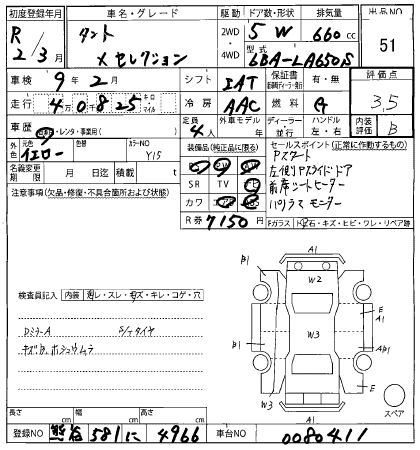 初度登録年月 車名・グレード 駆動 ドア数・形状 排気量 出品NO
R 2/3月 タント 2WD 4WD 5 W 660 cc 51
X セレクション 型式 6BA-LA650S
車検 9年2月 シフト IAT 保証書 有・無 評価点
走行 4万0825 キロ・マイル 冷房 AAC 燃料 G 3.5
車歴 自家用・レンタ・事業用( ) 定員 4人 外車モデル 年 ディーラー・並行 ハンドル 左・右 内装評価 B
外色 元色 イエロー 色替 カラーNO Y15 装備品(純正品に限る) セールスポイント(正常に作動するもの)
名義変更期限 月 日迄 積載 t Pスタート
注意事項(欠品・修復・不具合箇所および状態) SR TV 左側Pスライドドア
カワ 前席シートヒーター
R券 7150円 パノラマモニター
Fガラス 飛石・キズ・ヒビ・ワレ・リペア跡
検査員記入 内装 スレ・キズ・キレ・コゲ・穴
DミラーA S/Tタイヤ
キズ、凹、ホシュウムラ
A1
β1
W2
E
A1
β1
W3
Aβ1
E
W3
A1
スペア
長さ cm 幅 cm 高さ cm
登録NO 熊谷 581 に 4966 車台NO 0080411